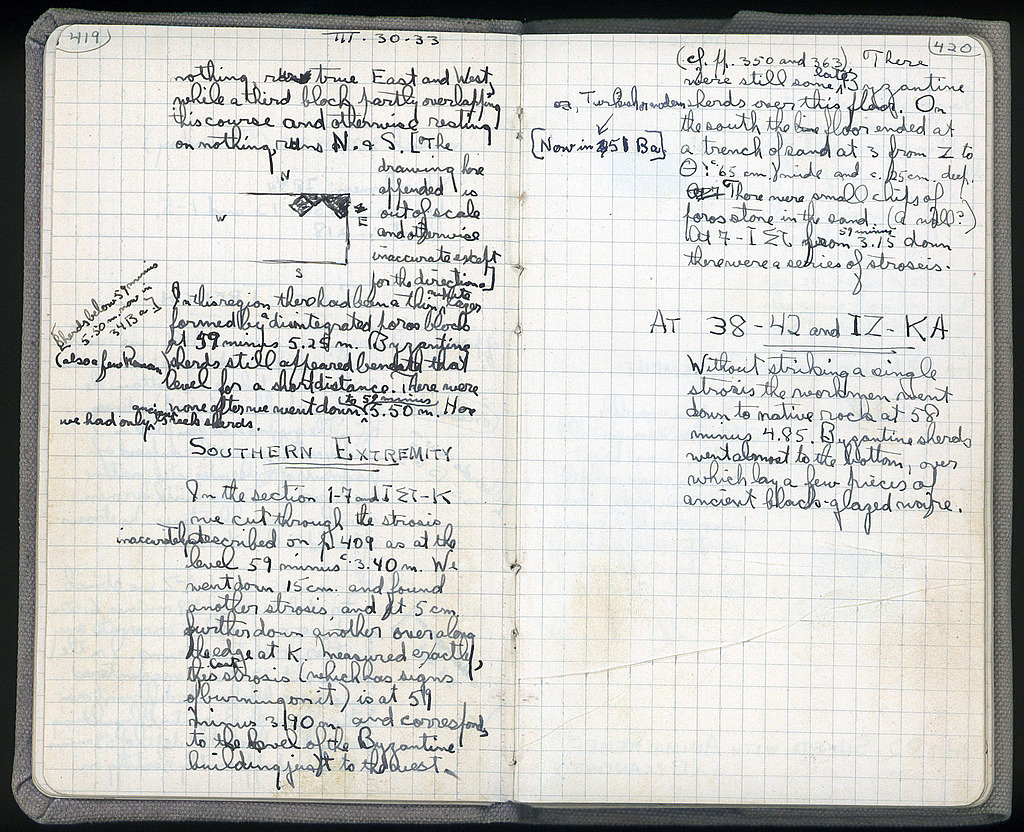 419
III · 30-33
nothing, runs true East and West
while a third block partly overlapping
this course and otherwise resting
on nothing, runs N. & S. [The
drawing here
appended is
out of scale
and otherwise
inaccurate except
for the directions]
N
W
E
S
In this region there had been a thin white layer
formed by disintegrated poros blocks
at 59 minus 5.25 m. (Byzantine
(also a few Roman) sherds still appeared beneath that
level for a short distance. There were
none after we went down to 59 minus 5.50 m. Here
we had only ancient Greek sherds.
[Sherds below 59 minus
5.50 m. now in
3413 a]
SOUTHERN EXTREMITY
In the section 1-7 and IΣΤ-K
we cut through the strosis
inaccurately described on p. 409 as at the
level 59 minus c. 3.40 m. We
went down 15 cm. and found
another strosis, and at 5 cm.
further down another over along
the edge at K. Measured exactly,
this last strosis (which has signs
of burning on it) is at 59
minus 3.90 m. and corresponds
to the level of the Byzantine
building just to the west.
420
(cf. pp. 350 and 363). There
were still some late Byzantine
or, Turkish or modern sherds over this floor. On
[Now in 351 Ba]
the south the floor ended at
a trench of sand at 3 from Z to
Θ: c. 65 cm. wide and c. 25 cm. deep.
There were small chips of
poros stone in the sand. (a wall?)
At 7-IΣΤ from 59 minus 3.15 down
there were a series of stroseis.
AT 38-42 and IZ-KA
Without striking a single
strosis the workmen went
down to native rock at 58
minus 4.85. Byzantine sherds
went almost to the bottom, over
which lay a few pieces of
ancient black-glazed ware.